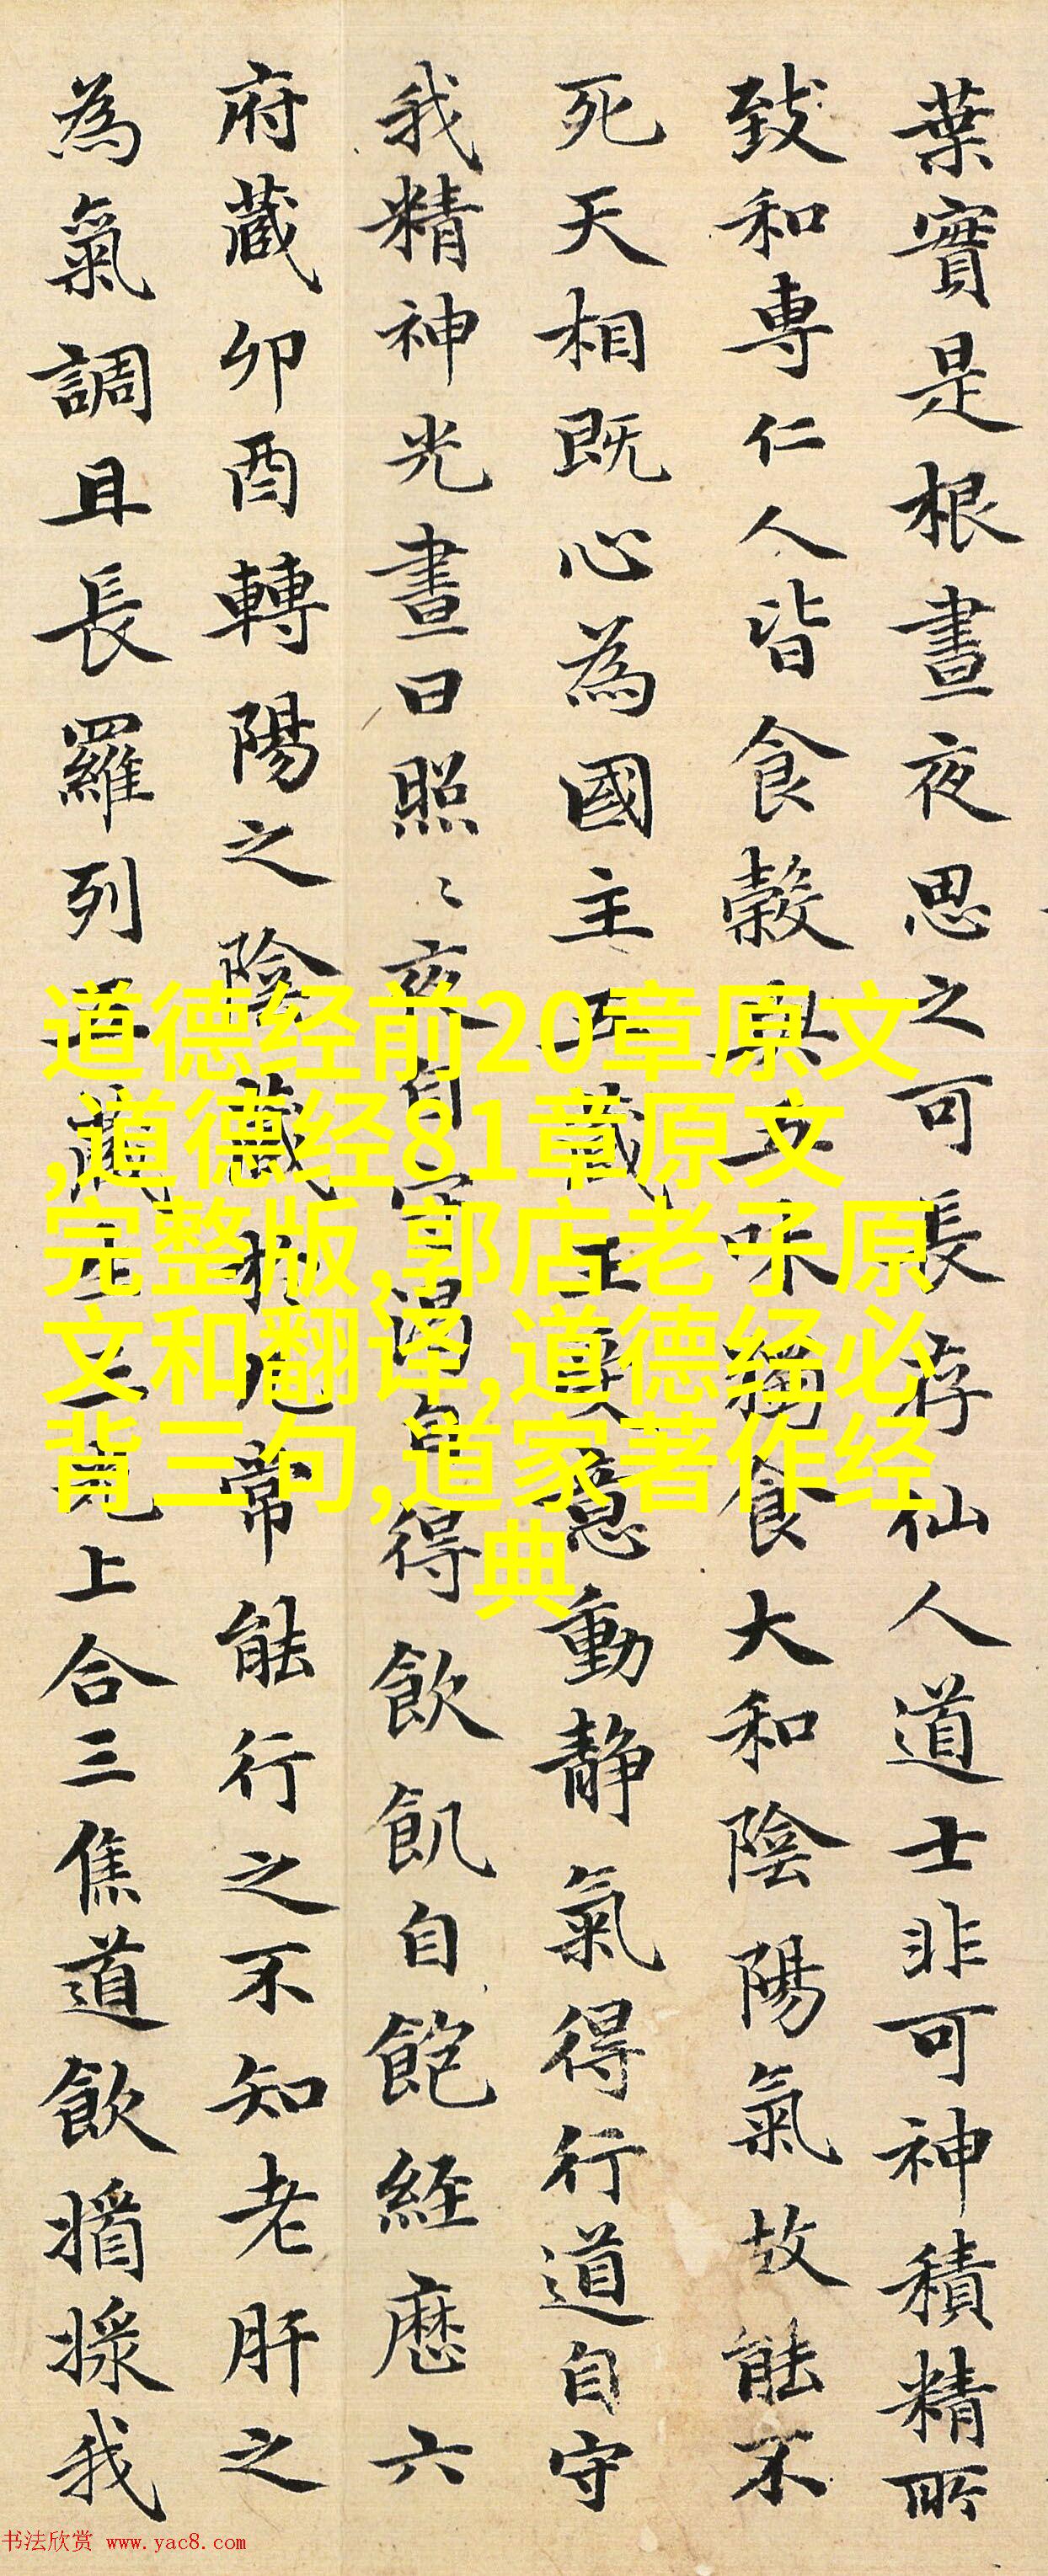 葉實是根晝夜思之可長存仙人道士非可神積精所
致和専仁人皆食穀與五味獨食大和陰陽氣故能不
死天相既心為國主五藏王受意動静氣得行道自守
我精神光晝日照〻夜自守渴自得飲飢自飽經歷六
府藏卯酉轉陽之陰藏於九常能行之不知老肝之
為氣調且長羅列五藏生三光上合三焦道飲漿我
道德经前20章原文
,道德经81章原文
完整版,郭店老子原
文和翻译,道德经必
背三句,道家著作经
典
书法欣赏 www.yac8.com